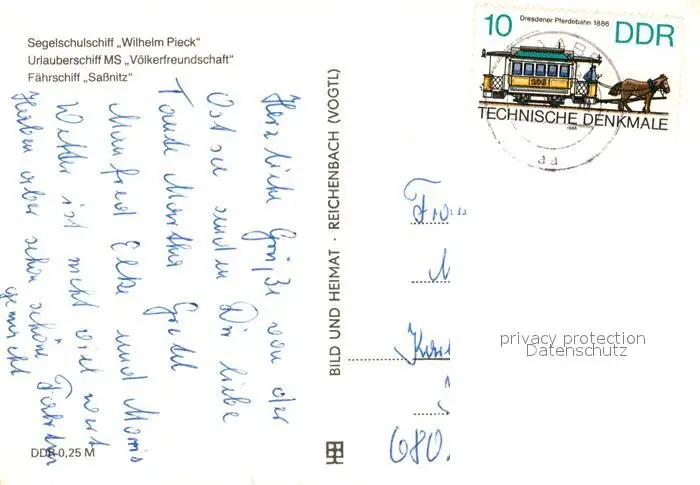 Segelschulschiff „Wilhelm Pieck"
Urlauberschiff MS „Völkerfreundschaft"
Fährschiff „Saßnitz"
Herzliche Grüße von der
Ostsee senden Dir liebe
Tante Martha Gretel
Manfred Elke und
Wetter ist nicht viel wert
Haben aber schon schöne Fahrten
gemacht
DDR 0,25 M
BILD UND HEIMAT · REICHENBACH (VOGTL)
10
Dresdener Pferdebahn 1886
DDR
TECHNISCHE DENKMALE
1986
privacy protection
Datenschutz
680